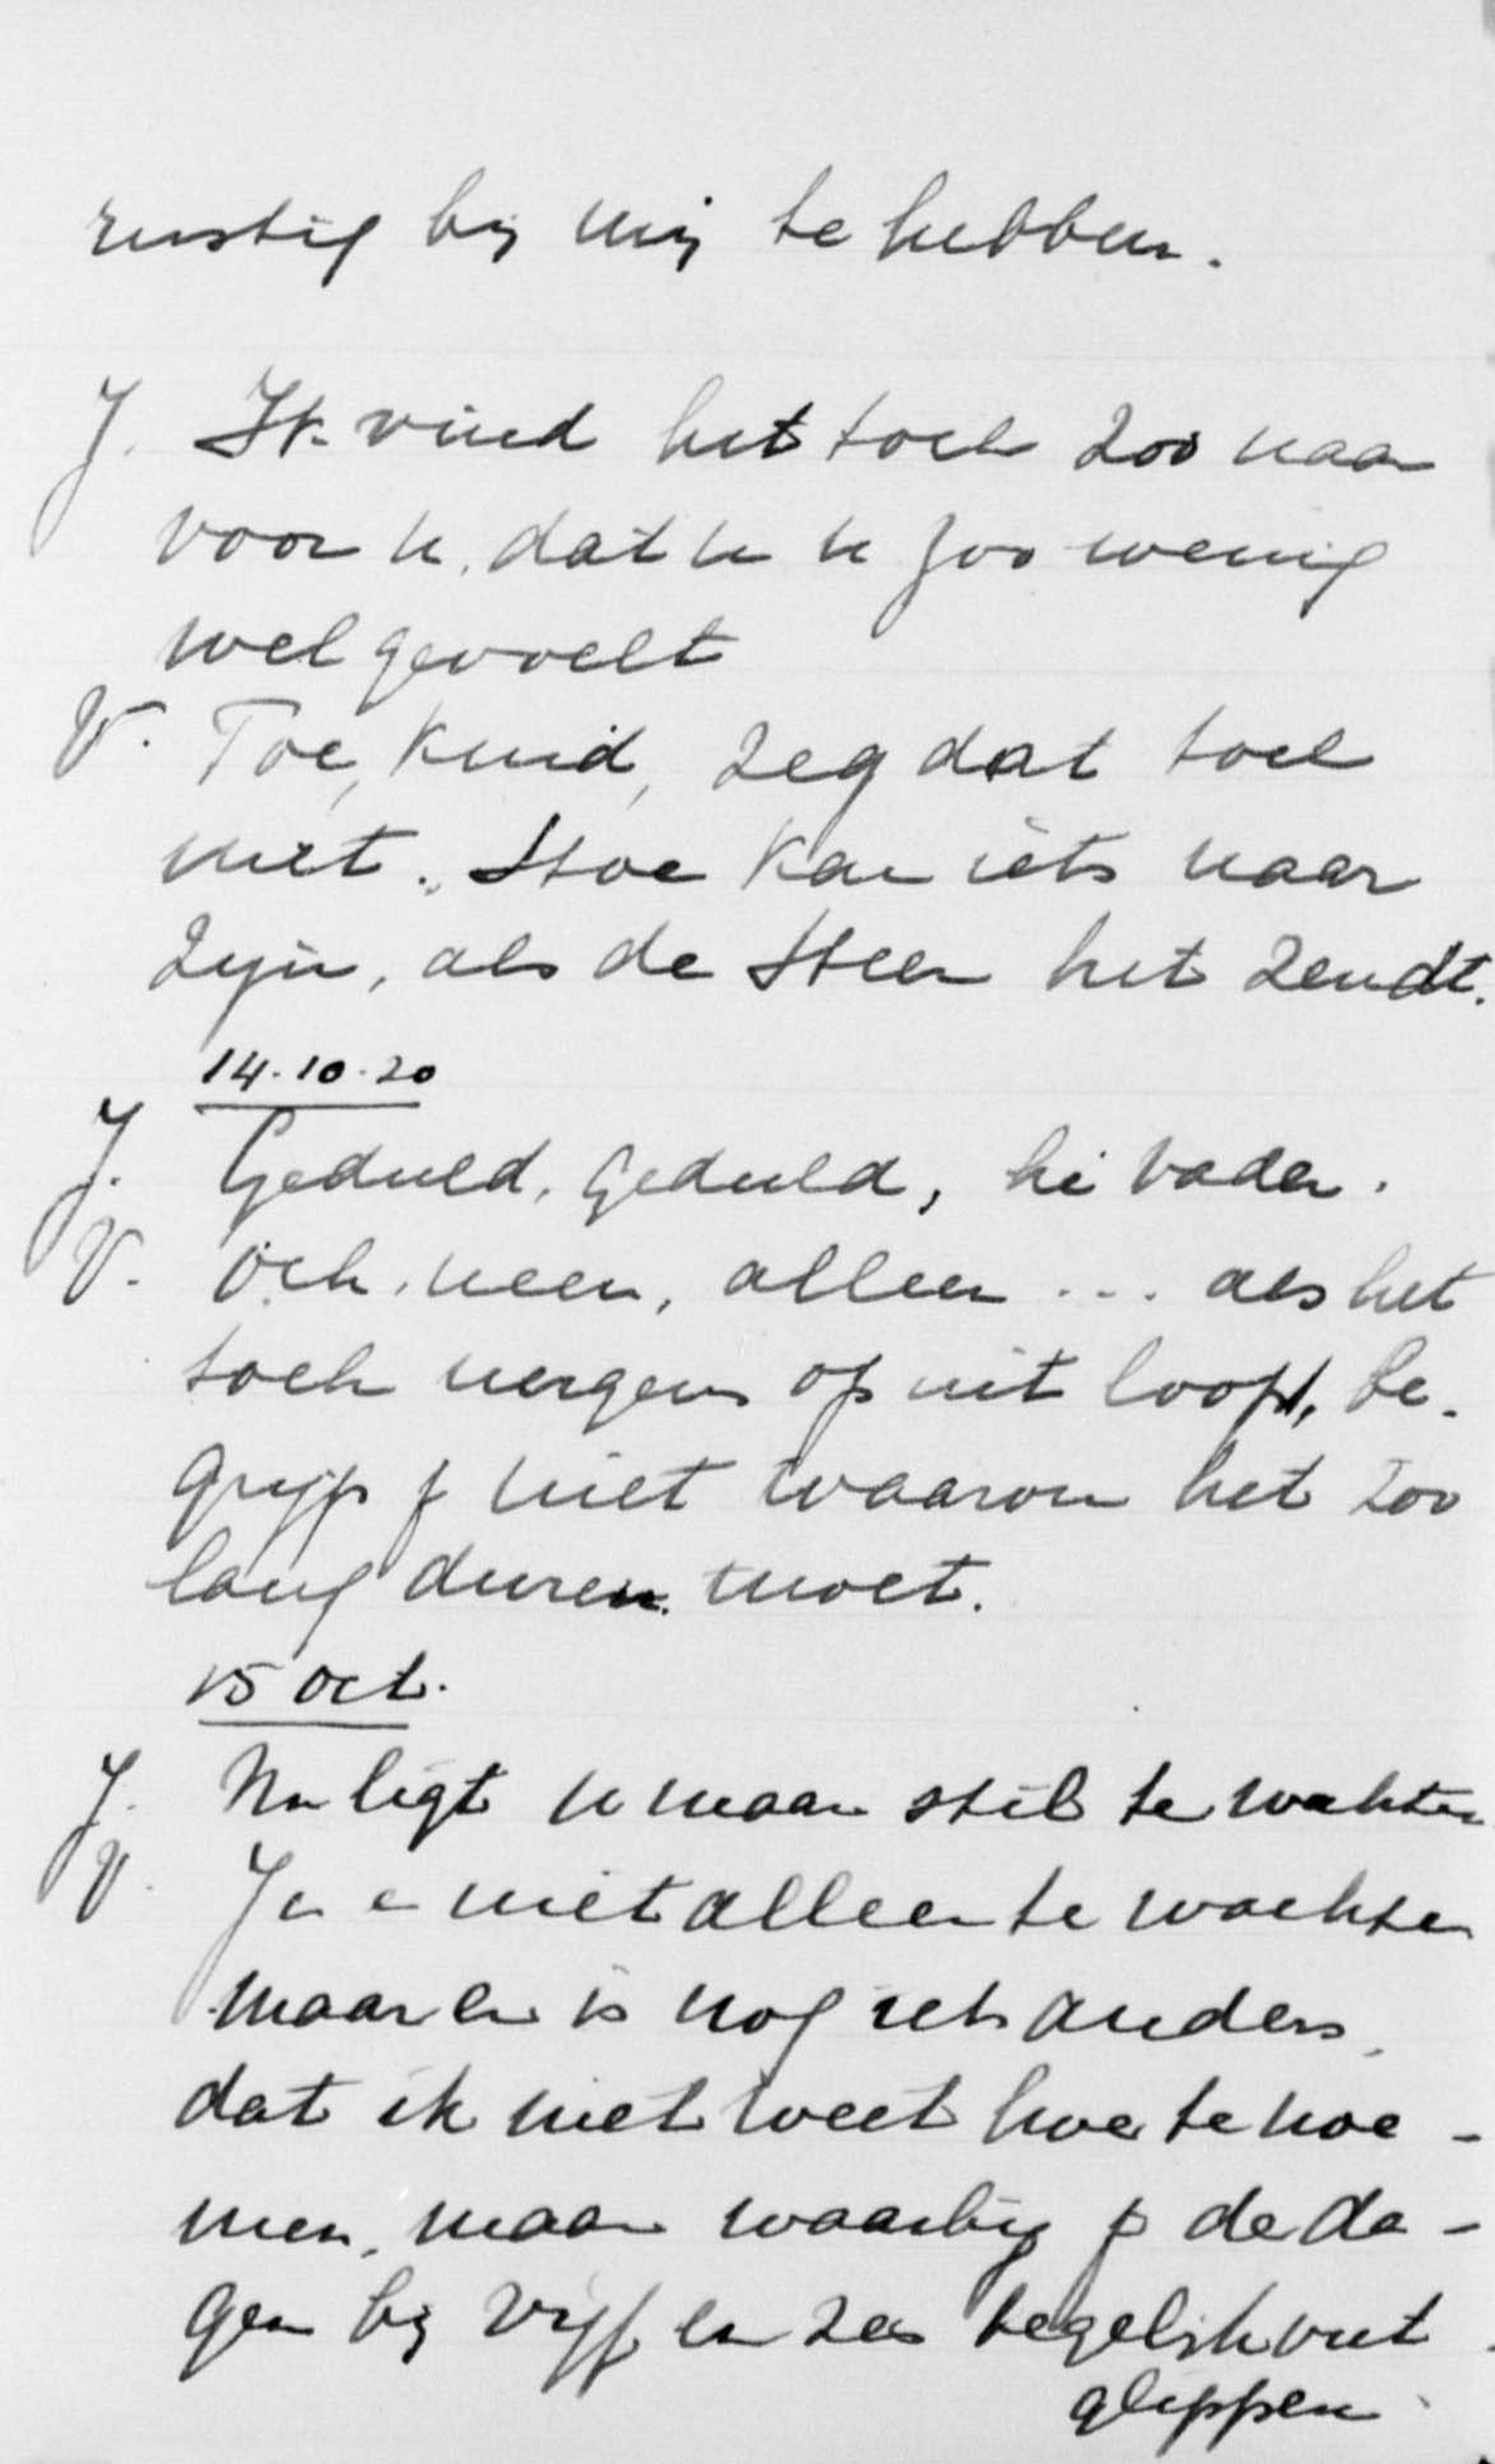 rustig bij mij te hebben.
J. Ik vind het toch zoo naar
voor u, dat u u zoo weinig
wel gevoelt
V. Toe, kind, zeg dat toch
niet. Hoe kan iets naar
zijn, als de Heer het zendt.
14.10.20
J. Geduld, geduld, hè vader.
V. Och, neen, alleen ... als het
toch nergens op uit loopt, be-
grijp j niet waarom het zoo
lang duren moet.
15 Oct.
J. Nu ligt u maar stil te wachten
V. Ja en niet alleen te wachten
maar er is nog iets anders,
dat ik niet weet hoe te noe-
men, maar waarbij j de da-
gen bij vijf en zes tegelijk ont
glippen